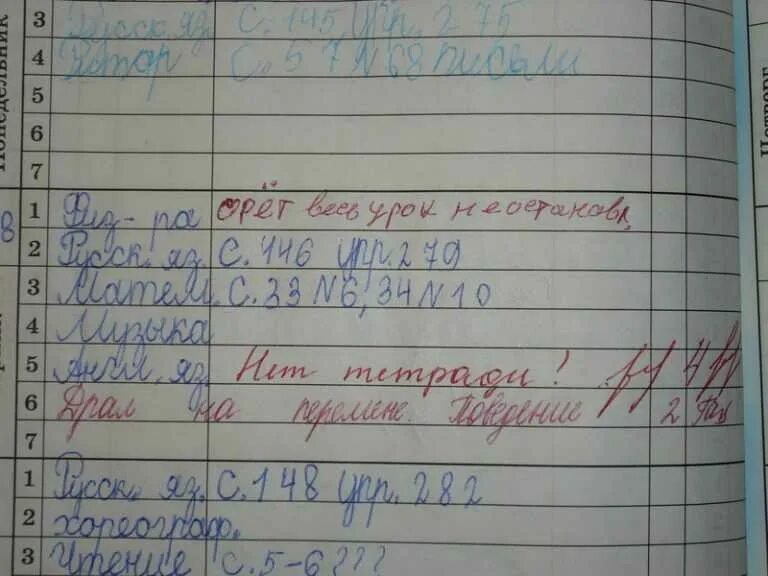 3 Русск. яз. С. 145, упр. 275
4 С. 57 N 68 письм
5
6
7
Понедельник
Четверг
8
1 Физ-ра орёт весь урок неостанавл.
2 Русск. яз. С. 146 упр. 279
3 Матем. С. 33 N 6, 34 N 10
4 Музыка
5 Англ. яз. Нет тетради! 4
6 Драл на перемене. Поведение 2
7
1 Русск. яз. С. 148 упр. 282
2 хореограф.
3 Чтение с. 5-6???